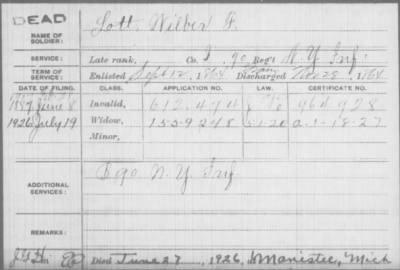 DEAD
NAME OF SOLDIER: Lott, Wilber F.
SERVICE: Late rank, Co. I, 90 Reg't N.Y. Inf.
TERM OF SERVICE: Enlisted Sept 12, 1864 Discharged 1864
DATE OF FILING. CLASS. APPLICATION NO. LAW. CERTIFICATE NO.
June 8 Invalid, 612.474 964928
1926 July 19 Widow, 1559248 5120 a-1-18-27
Minor,
ADDITIONAL SERVICES: D 90 N.Y. Inf
REMARKS:
Died June 27, 1926, Manistee, Mich